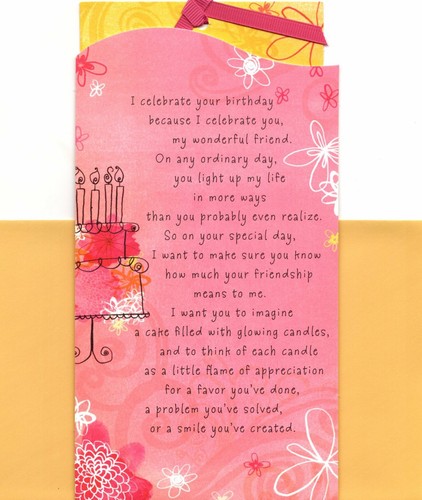 I celebrate your birthday
because I celebrate you,
my wonderful friend.
On any ordinary day,
you light up my life
in more ways
than you probably even realize.
So on your special day,
I want to make sure you know
how much your friendship
means to me.
I want you to imagine
a cake filled with glowing candles,
and to think of each candle
as a little flame of appreciation
for a favor you've done,
a problem you've solved,
or a smile you've created.